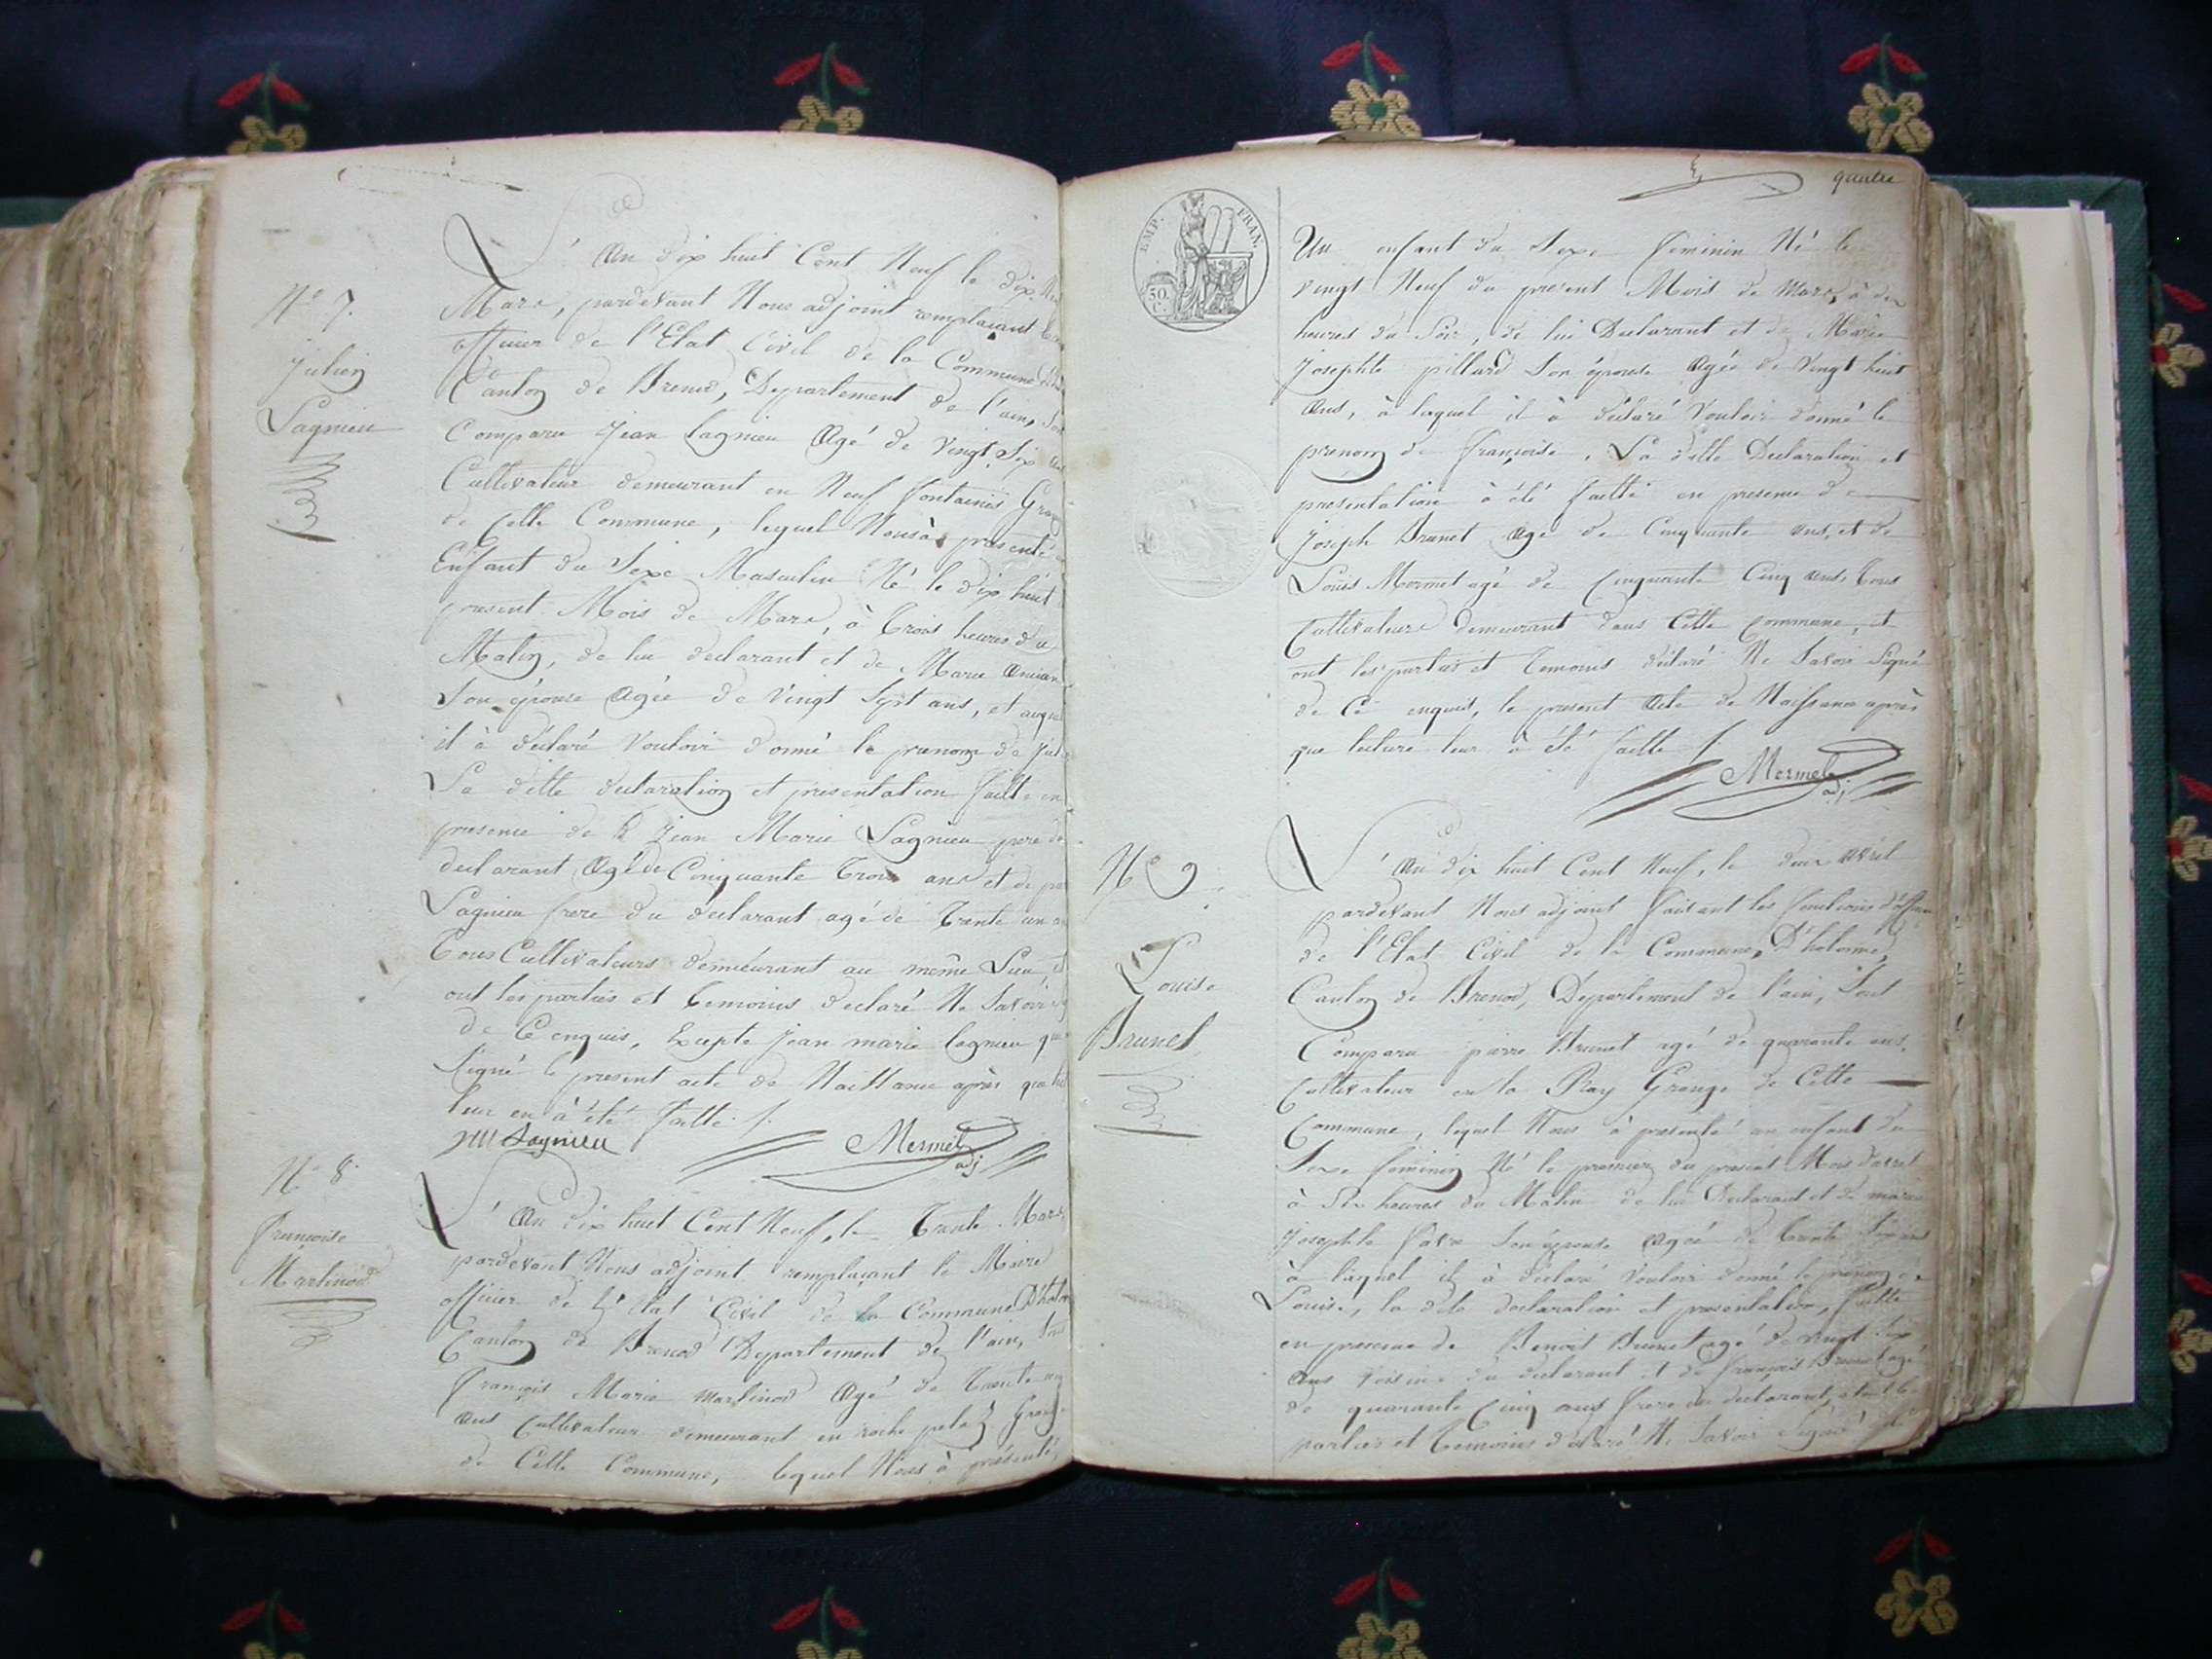 N° 7.
Julien
Lagnieu
L'an dix huit Cent Neuf le dix
Mars, pardevant Nous adjoint remplacant
officier de l'Etat Civil de la Commune
Canton de Brenod, Departement de l'ain,
Comparu Jean Lagnieu agé de Vingt Six
Cultivateur demeurant en Neuf fontaines
de Cette Commune, lequel Nous à présenté
Enfant du Sexe Masculin Né le dix huit
present Mois de Mars, à trois heures du
Matin, de lui declarant et de Marie
Son épouse agée de Vingt Sept ans, et auquel
il à déclaré Vouloir donné le prenom de
La ditte declaration et presentation faitte en
presence de Jean Marie Lagnieu pere du
declarant agé de Cinquante trois ans et de
Lagnieu frere du declarant agé de trente un
tous Cultivateurs demeurant au même Lieu,
ont les parties et temoins declaré Ne Savoir
de Ce enquis, Excepté Jean marie lagnieu qui
Signé le present acte de Naissance après que
leur en à été faitte ./.
JM Lagnieu
Mermet adj
N° 8.
françoise
Martinod
L'an dix huit Cent Neuf, le trente Mars,
pardevant Nous adjoint remplaçant le Maire
officier de l'Etat Civil de la Commune
Canton de Brenod Departement de l'ain,
françois Marie martinod agé de trente
ans Cultivateur demeurant en roche
de Cette Commune, lequel Nous à présenté,
quatre
EMP. FRAN.
50. C.
Un enfant du Sexe feminin Né le
vingt Neuf du present Mois de Mars, à dix
heures du Soir, de lui Declarant et de Marie
Josephte pillard Son épouse agée de Vingt huit
ans, à laquel il à déclaré Vouloir donné le
prenom de françoise, La ditte Declaration et
presentation à été faitte en presence de
Joseph Brunet agé de Cinquante ans, et de
Louis Mermet agé de Cinquante Cinq ans, tous
Cultivateurs demeurant dans Cette Commune, et
ont les parties et temoins déclaré Ne Savoir Signé
de Ce enquis, le present acte de Naissance après
que lecture leur à été faitte ./.
Mermet adj
N° 9.
Louise
Brunet
L'an dix huit Cent Neuf, le deux avril
pardevant Nous adjoint faisant les fonctions d'officier
de l'Etat Civil de la Commune, D'hotonne,
Canton de Brenod, Departement de l'ain, Sont
Comparu pierre Brunet agé de quarante ans,
Cultivateur en la Ray Grange de Cette
Commune, lequel Nous à presenté un enfant du
Sexe feminin Né le premier du present Mois d'avril
à Six heures du Matin de lui Declarant et de marie
Josephte Son épouse agée de trente Six ans
à laquel il à déclaré Vouloir donné le prenom de
Louise, la dite declaration et presentation, faitte
en presence de Benoit Brunet agé de vingt
ans Voisin du declarant et de françois Brunet agé
de quarante Cinq ans frere du declarant,
parties et temoins déclaré Ne Savoir Signé